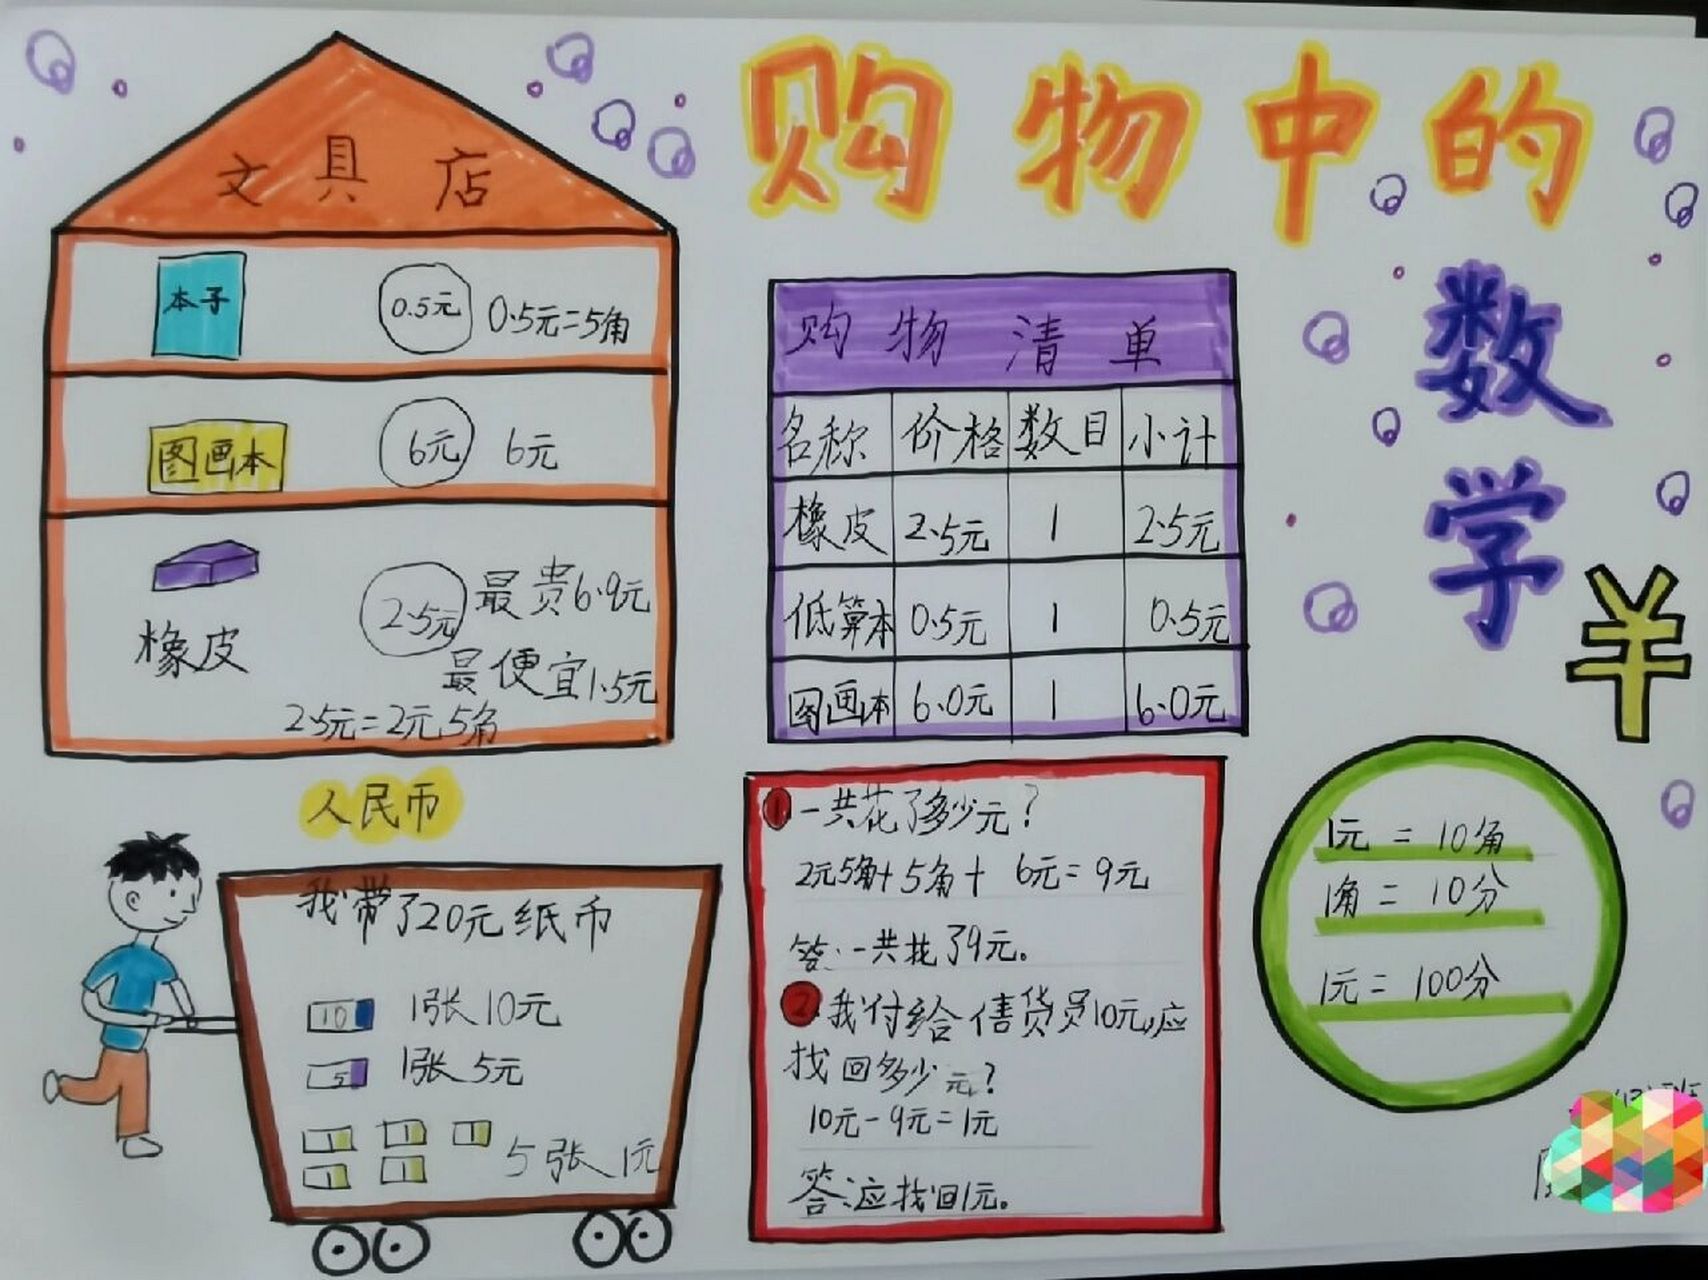 购物中的
数学
¥
文具店
本子 0.5元 0.5元=5角
图画本 6元 6元
橡皮 2.5元 最贵6.9元
最便宜1.5元
2.5元=2元5角
购物清单
名称 价格 数目 小计
橡皮 2.5元 1 2.5元
低算本 0.5元 1 0.5元
图画本 6.0元 1 6.0元
人民币
我带了20元纸币
10 1张10元
5 1张5元
1 1 1
1 1 5张1元
1 一共花了多少元?
2元5角+5角+6元=9元
答:一共花了9元。
2 我付给售货员10元,应
找回多少元?
10元-9元=1元
答:应找回1元。
1元=10角
1角=10分
1元=100分